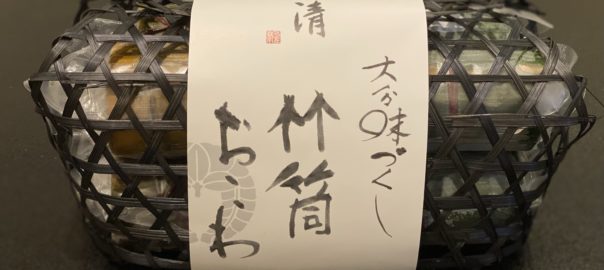 大分味づくし
清
竹筒
おこわ